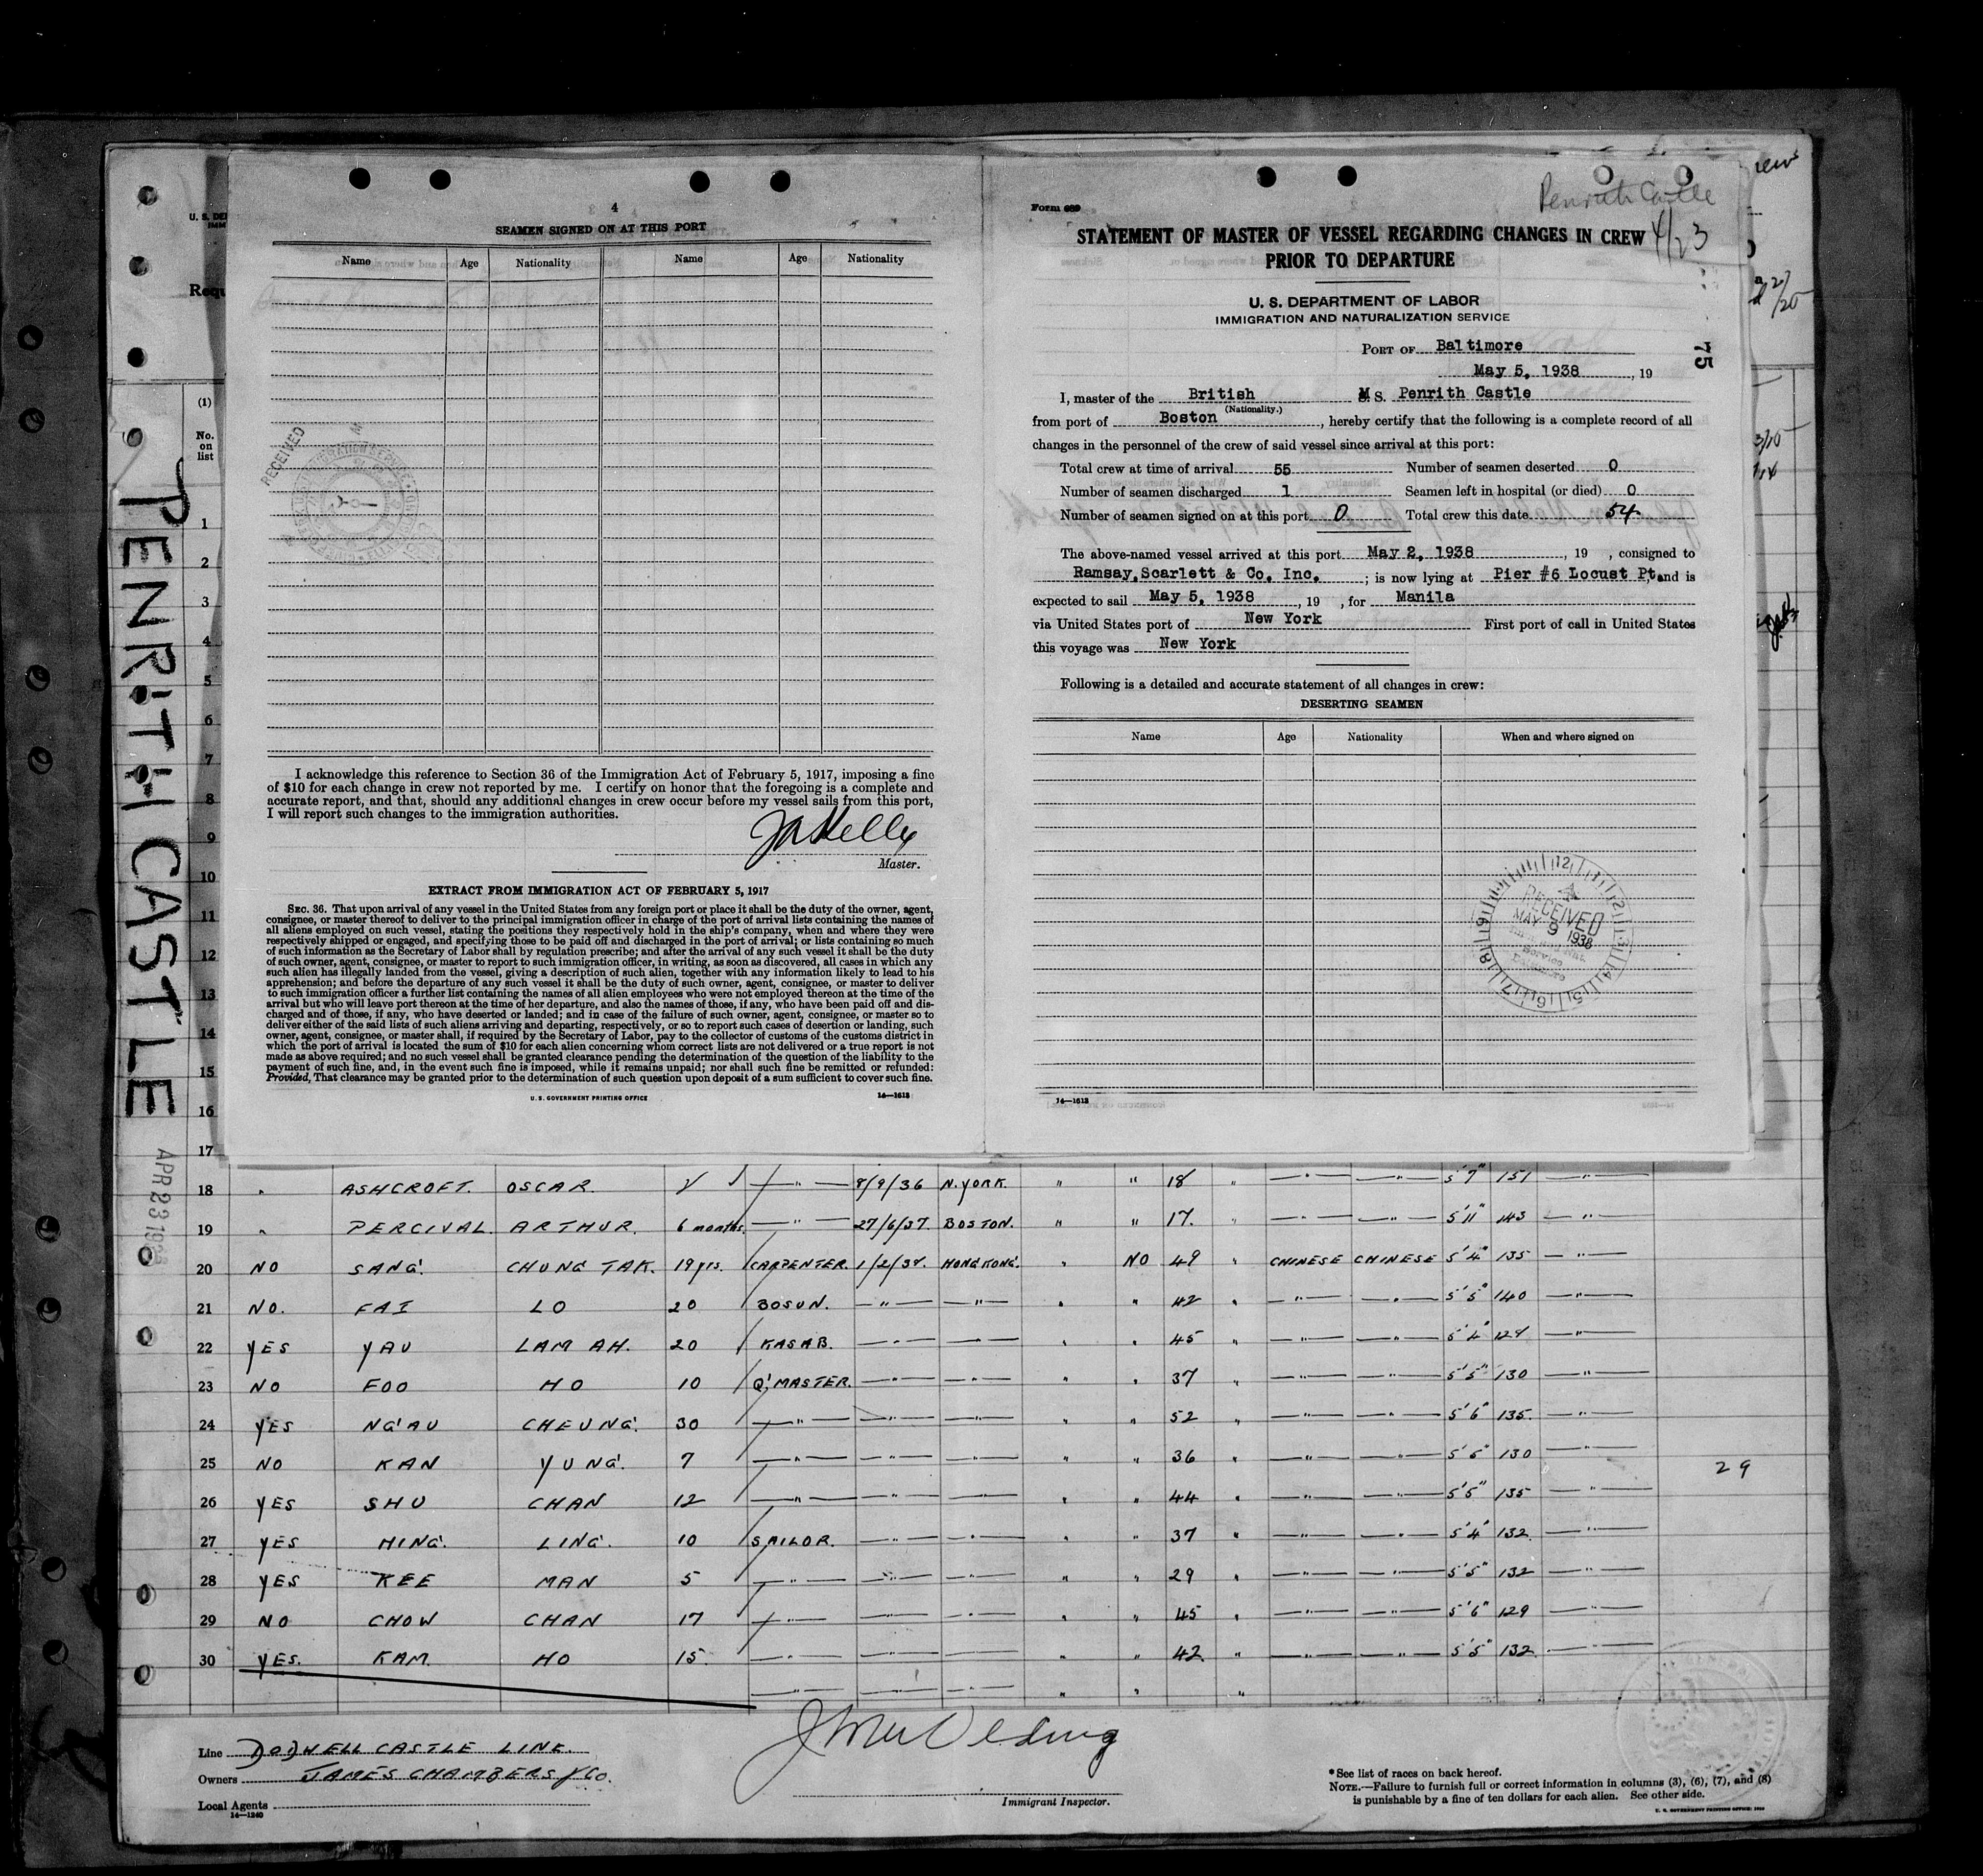 4
SEAMEN SIGNED ON AT THIS PORT
Name Age Nationality Name Age Nationality
RECEIVED
I acknowledge this reference to Section 36 of the Immigration Act of February 5, 1917, imposing a fine
of $10 for each change in crew not reported by me. I certify on honor that the foregoing is a complete and
accurate report, and that, should any additional changes in crew occur before my vessel sails from this port,
I will report such changes to the immigration authorities.
Master.
EXTRACT FROM IMMIGRATION ACT OF FEBRUARY 5, 1917
SEC. 36. That upon arrival of any vessel in the United States from any foreign port or place it shall be the duty of the owner, agent,
consignee, or master thereof to deliver to the principal immigration officer in charge of the port of arrival lists containing the names of
all aliens employed on such vessel, stating the positions they respectively hold in the ship's company, when and where they were
respectively shipped or engaged, and specifying those to be paid off and discharged in the port of arrival; or lists containing so much
of such information as the Secretary of Labor shall by regulation prescribe; and after the arrival of any such vessel it shall be the duty
of such owner, agent, consignee, or master to report to such immigration officer, in writing, as soon as discovered, all cases in which any
such alien has illegally landed from the vessel, giving a description of such alien, together with any information likely to lead to his
apprehension; and before the departure of any such vessel it shall be the duty of such owner, agent, consignee, or master to deliver
to such immigration officer a further list containing the names of all alien employees who were not employed thereon at the time of the
arrival but who will leave port thereon at the time of her departure, and also the names of those, if any, who have been paid off and dis-
charged and of those, if any, who have deserted or landed; and in case of the failure of such owner, agent, consignee, or master so to
deliver either of the said lists of such aliens arriving and departing, respectively, or so to report such cases of desertion or landing, such
owner, agent, consignee, or master shall, if required by the Secretary of Labor, pay to the collector of customs of the customs district in
which the port of arrival is located the sum of $10 for each alien concerning whom correct lists are not delivered or a true report is not
made as above required; and no such vessel shall be granted clearance pending the determination of the question of the liability to the
payment of such fine, and, in the event such fine is imposed, while it remains unpaid; nor shall such fine be remitted or refunded:
Provided, That clearance may be granted prior to the determination of such question upon deposit of a sum sufficient to cover such fine.
U. S. GOVERNMENT PRINTING OFFICE 14—1613
Penrith Castle
4/23
Form 689
STATEMENT OF MASTER OF VESSEL REGARDING CHANGES IN CREW
PRIOR TO DEPARTURE
U. S. DEPARTMENT OF LABOR
IMMIGRATION AND NATURALIZATION SERVICE
75
PORT OF Baltimore
May 5, 1938, 19
I, master of the British M S. Penrith Castle
(Nationality.)
from port of Boston, hereby certify that the following is a complete record of all
changes in the personnel of the crew of said vessel since arrival at this port:
Total crew at time of arrival 55 Number of seamen deserted 0
Number of seamen discharged 1 Seamen left in hospital (or died) 0
Number of seamen signed on at this port 0 Total crew this date 54
The above-named vessel arrived at this port May 2, 1938, 19 , consigned to
Ramsay, Scarlett & Co. Inc. ; is now lying at Pier #6 Locust Pt, and is
expected to sail May 5, 1938, 19 , for Manila
via United States port of New York First port of call in United States
this voyage was New York
Following is a detailed and accurate statement of all changes in crew:
DESERTING SEAMEN
Name Age Nationality When and where signed on
RECEIVED
MAY 9 1938
14—1613
PENRITH CASTLE
APR 23 1938
U. S. DE
IMM
Requ
(1)
No.
on
list
1
2
3
4
5
6
7
8
9
10
11
12
13
14
15
16
17
18 " ASHCROFT. OSCAR. —"— 8/9/36 N. YORK. " " 18 " —"— —"— 5'7" 151 —"—
19 " PERCIVAL. ARTHUR. 6 months. —"— 27/6/37. BOSTON. " " 17. " —"— —"— 5'11" 143 —"—
20 NO SANG. CHUNG TAK. 19 yrs. CARPENTER. 1/2/38. HONG KONG. " NO 49 " CHINESE CHINESE 5'4" 135 —"—
21 NO. FAI LO 20 BOSUN. —"— —"— " " 42 " —"— —"— 5'5" 140 —"—
22 YES YAU LAM AH. 20 KASAB. —"— —"— " " 45 " —"— —"— 5'4" 129 —"—
23 NO FOO HO 10 Q'MASTER. —"— —"— " " 37 " —"— —"— 5'5" 130 —"—
24 YES NGAU CHEUNG. 30 —"— —"— —"— " " 52 " —"— —"— 5'6" 135. —"—
25 NO KAN YUNG. 7 —"— —"— —"— " " 36 " —"— —"— 5'6" 130 —"— 29
26 YES SHU CHAN 12 —"— —"— —"— " " 44 " —"— —"— 5'5" 135 —"—
27 YES HING. LING. 10 SAILOR. —"— —"— " " 37 " —"— —"— 5'4" 132 —"—
28 YES KEE MAN 5 —"— —"— —"— " " 29 " —"— —"— 5'5" 132 —"—
29 NO CHOW CHAN 17 —"— —"— —"— " " 45 " —"— —"— 5'6" 129 —"—
30 YES. KAM. HO 15. —"— —"— —"— " " 42. " —"— —"— 5'5" 132. —"—
—"— —"— —"— " " "
Line DODWELL CASTLE LINE.
Owners JAMES CHAMBERS & Co.
Local Agents
14—1240
Immigrant Inspector.
*See list of races on back hereof.
NOTE.—Failure to furnish full or correct information in columns (3), (6), (7), and (8)
is punishable by a fine of ten dollars for each alien. See other side.